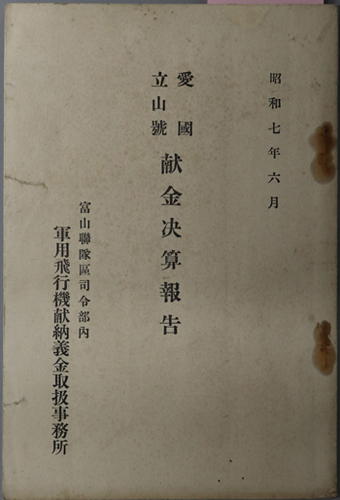 昭和七年六月
愛國
立山號
献金决算報告
富山聯隊區司令部內
軍用飛行機献納義金取扱事務所